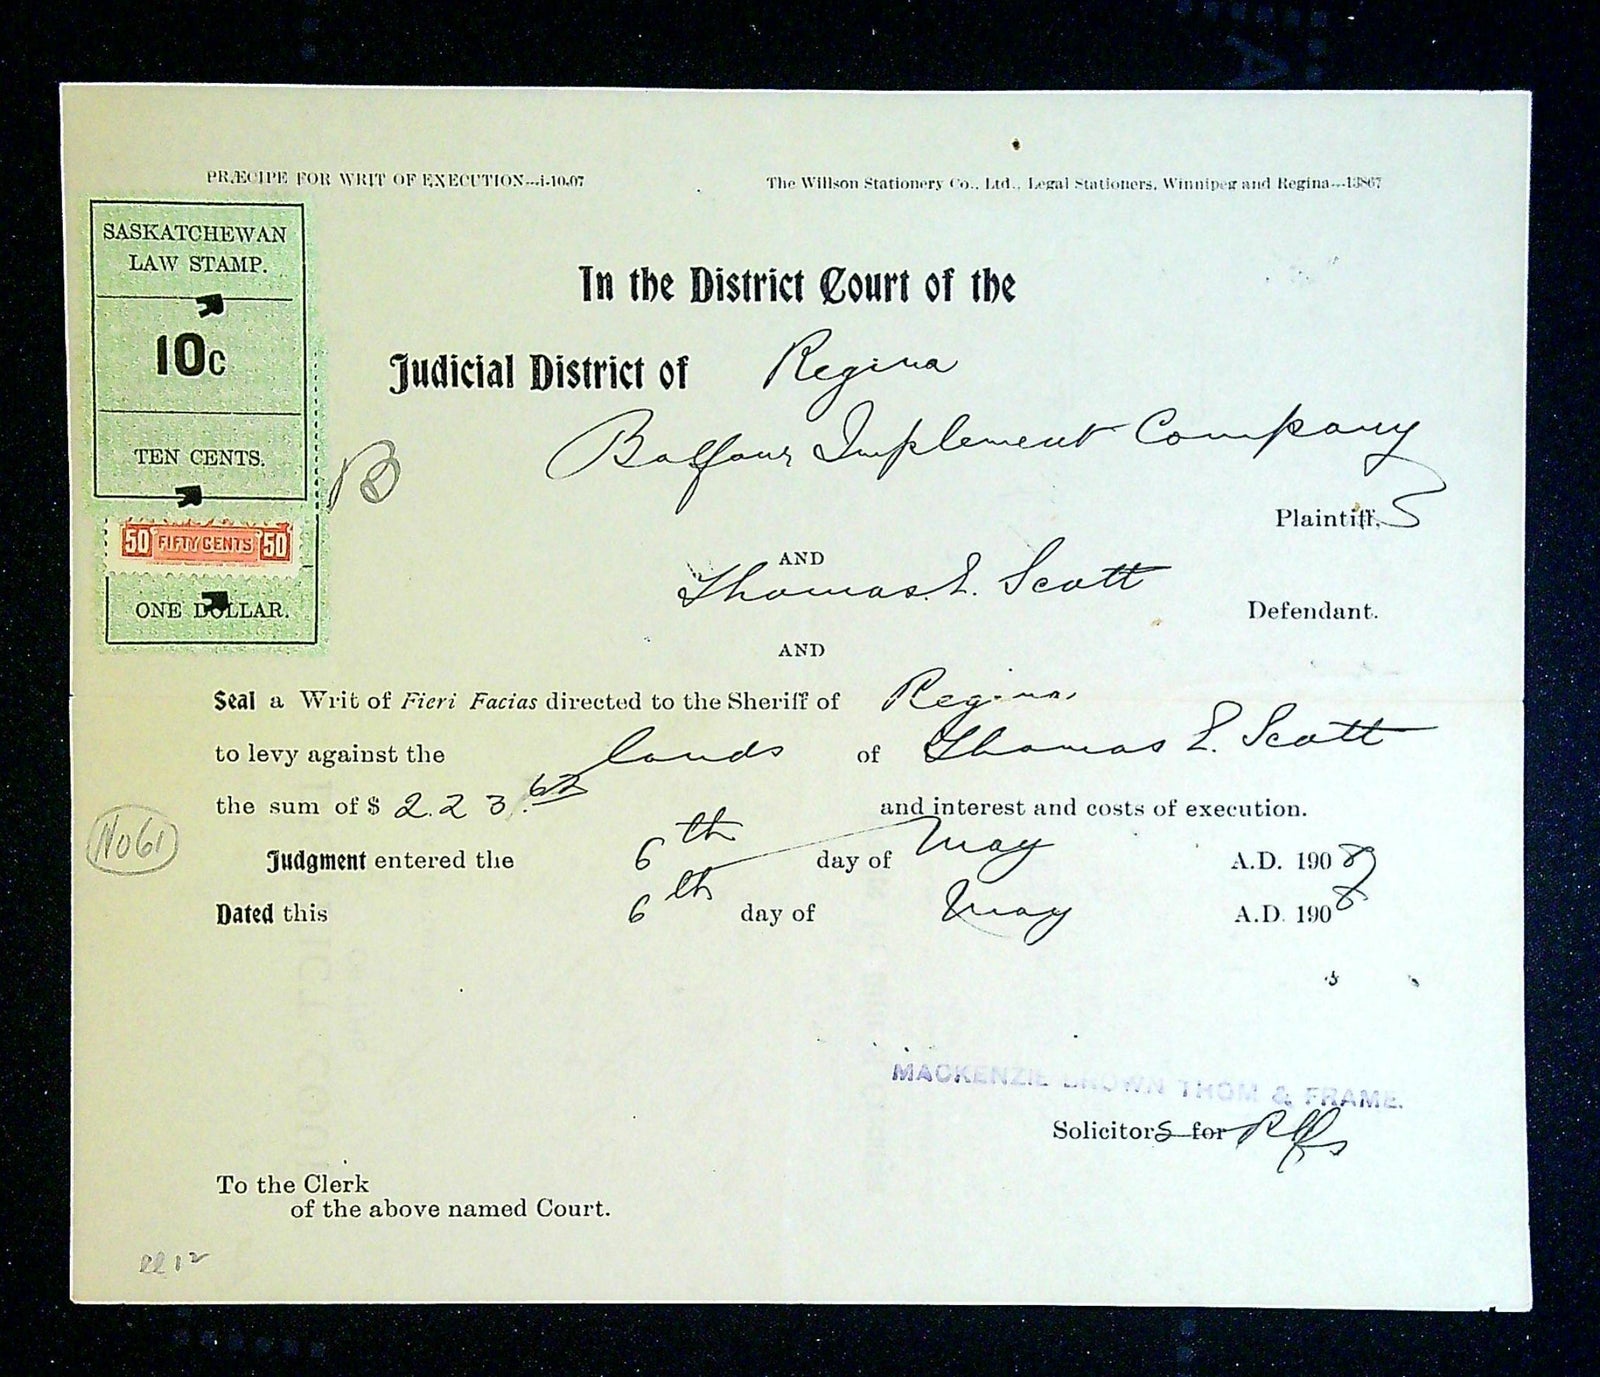 PRÆCIPE FOR WRIT OF EXECUTION---i-10-07
The Willson Stationery Co., Ltd., Legal Stationers, Winnipeg and Regina---13867
SASKATCHEWAN
LAW STAMP.
10c
TEN CENTS.
50 FIFTY CENTS 50
ONE DOLLAR.
In the District Court of the
Judicial District of Regina
B
Balfour Implement Company
Plaintiff, S
AND
Thomas. E. Scott
Defendant.
AND
Seal a Writ of Fieri Facias directed to the Sheriff of Regina
to levy against the lands of Thomas E. Scott
the sum of $ 223.62 and interest and costs of execution.
No 61
Judgment entered the 6th day of May A.D. 1908
Dated this 6th day of May A.D. 1908
MACKENZIE BROWN THOM & FRAME.
Solicitors for Plffs
To the Clerk
of the above named Court.